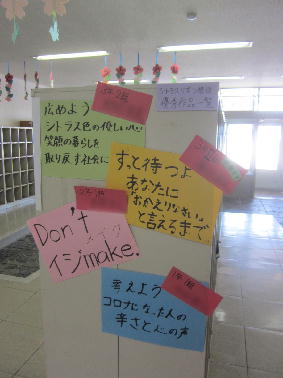 シトラスリボン標語
優秀作品一覧
広めよう
シトラス色の優しい心
笑顔の暮らしを
取り戻す社会に
ずっと待つよ
あなたに
おかえりなさい。と
言えるまで
Don't
メイク
イジmake.
考えよう
コロナになった人の
辛さと心の声